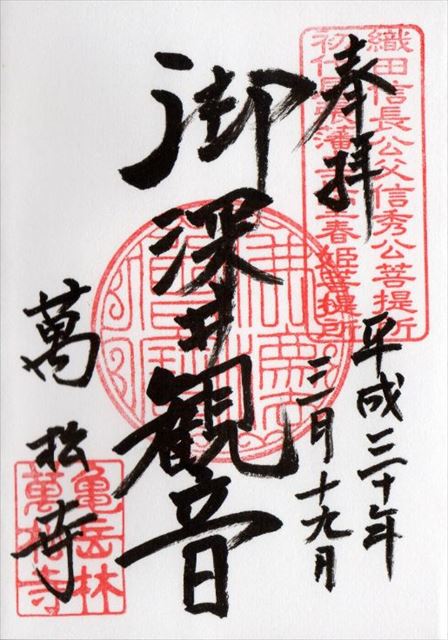 織田信長公父信秀公菩提所
初代尾張藩主正室春姫菩提所
奉拝
平成三十年
三月十九日
御深井観音
萬松寺
亀岳林
萬松寺